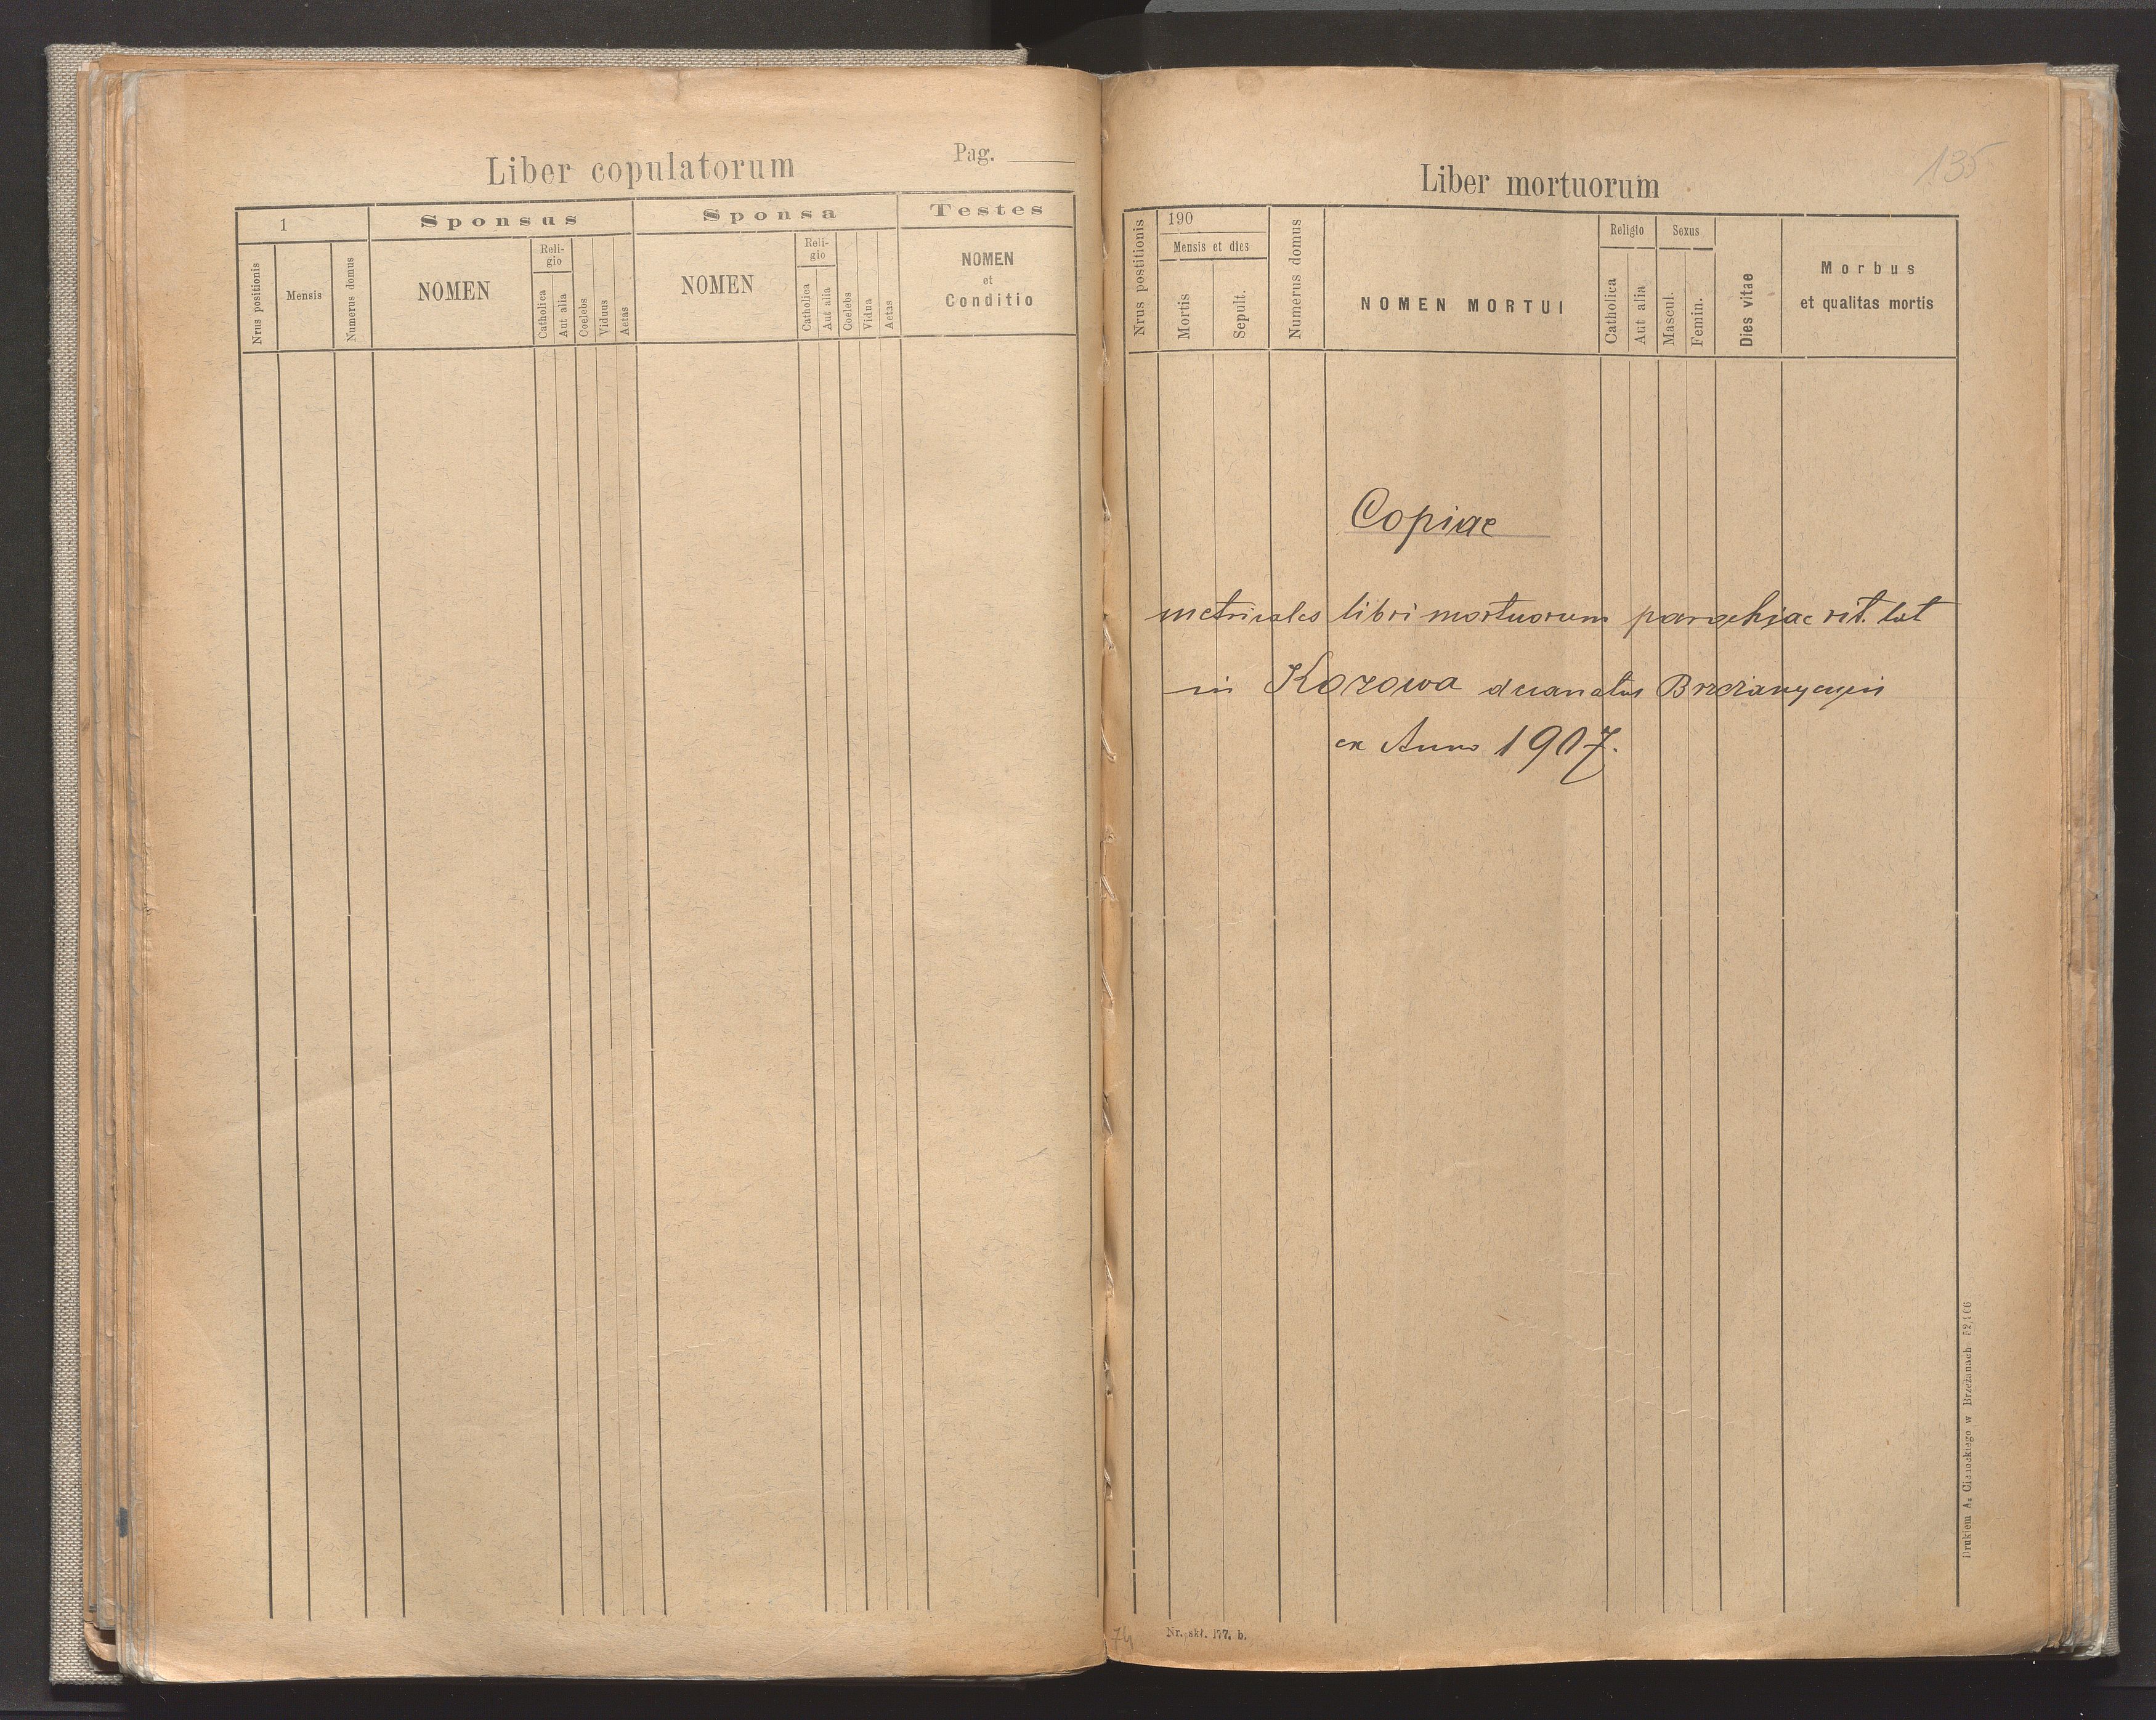 Liber copulatorum
Pag.
1
Sponsus
Sponsa
Testes
Nrus positionis
Mensis
Numerus domus
NOMEN
Religio
Catholica
Aut alia
Coelebs
Viduus
Aetas
NOMEN
Religio
Catholica
Aut alia
Coelebs
Vidua
Aetas
NOMEN
et
Conditio
135
Liber mortuorum
Nrus postitionis
190
Mensis et dies
Mortis
Sepult.
Numerus domus
NOMEN MORTUI
Religio
Catholica
Aut alia
Sexus
Mascul.
Femin.
Dies vitae
Morbus
et qualitas mortis
Copiae
metricales libri mortuorum parochiae rit. lat
in Kozowa decanatus
ex Anno 1907.
Drukiem A. w Brzeżanach
74
Nr. skł. 177. b.